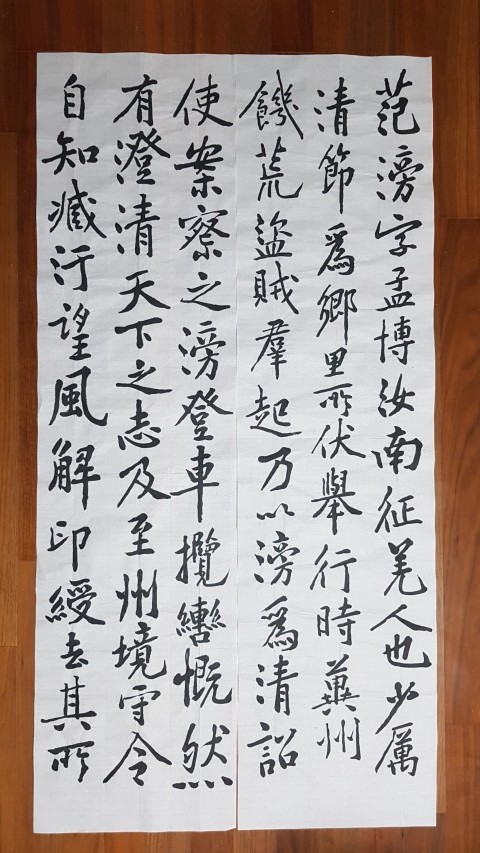 范滂字孟博汝南征羌人也少厲
清節爲鄉里所伏舉行時冀州
饑荒盜賊羣起乃以滂爲清詔
使案察之滂登車攬轡慨然
有澄清天下之志及至州境守令
自知臧汙望風解印綬去其所